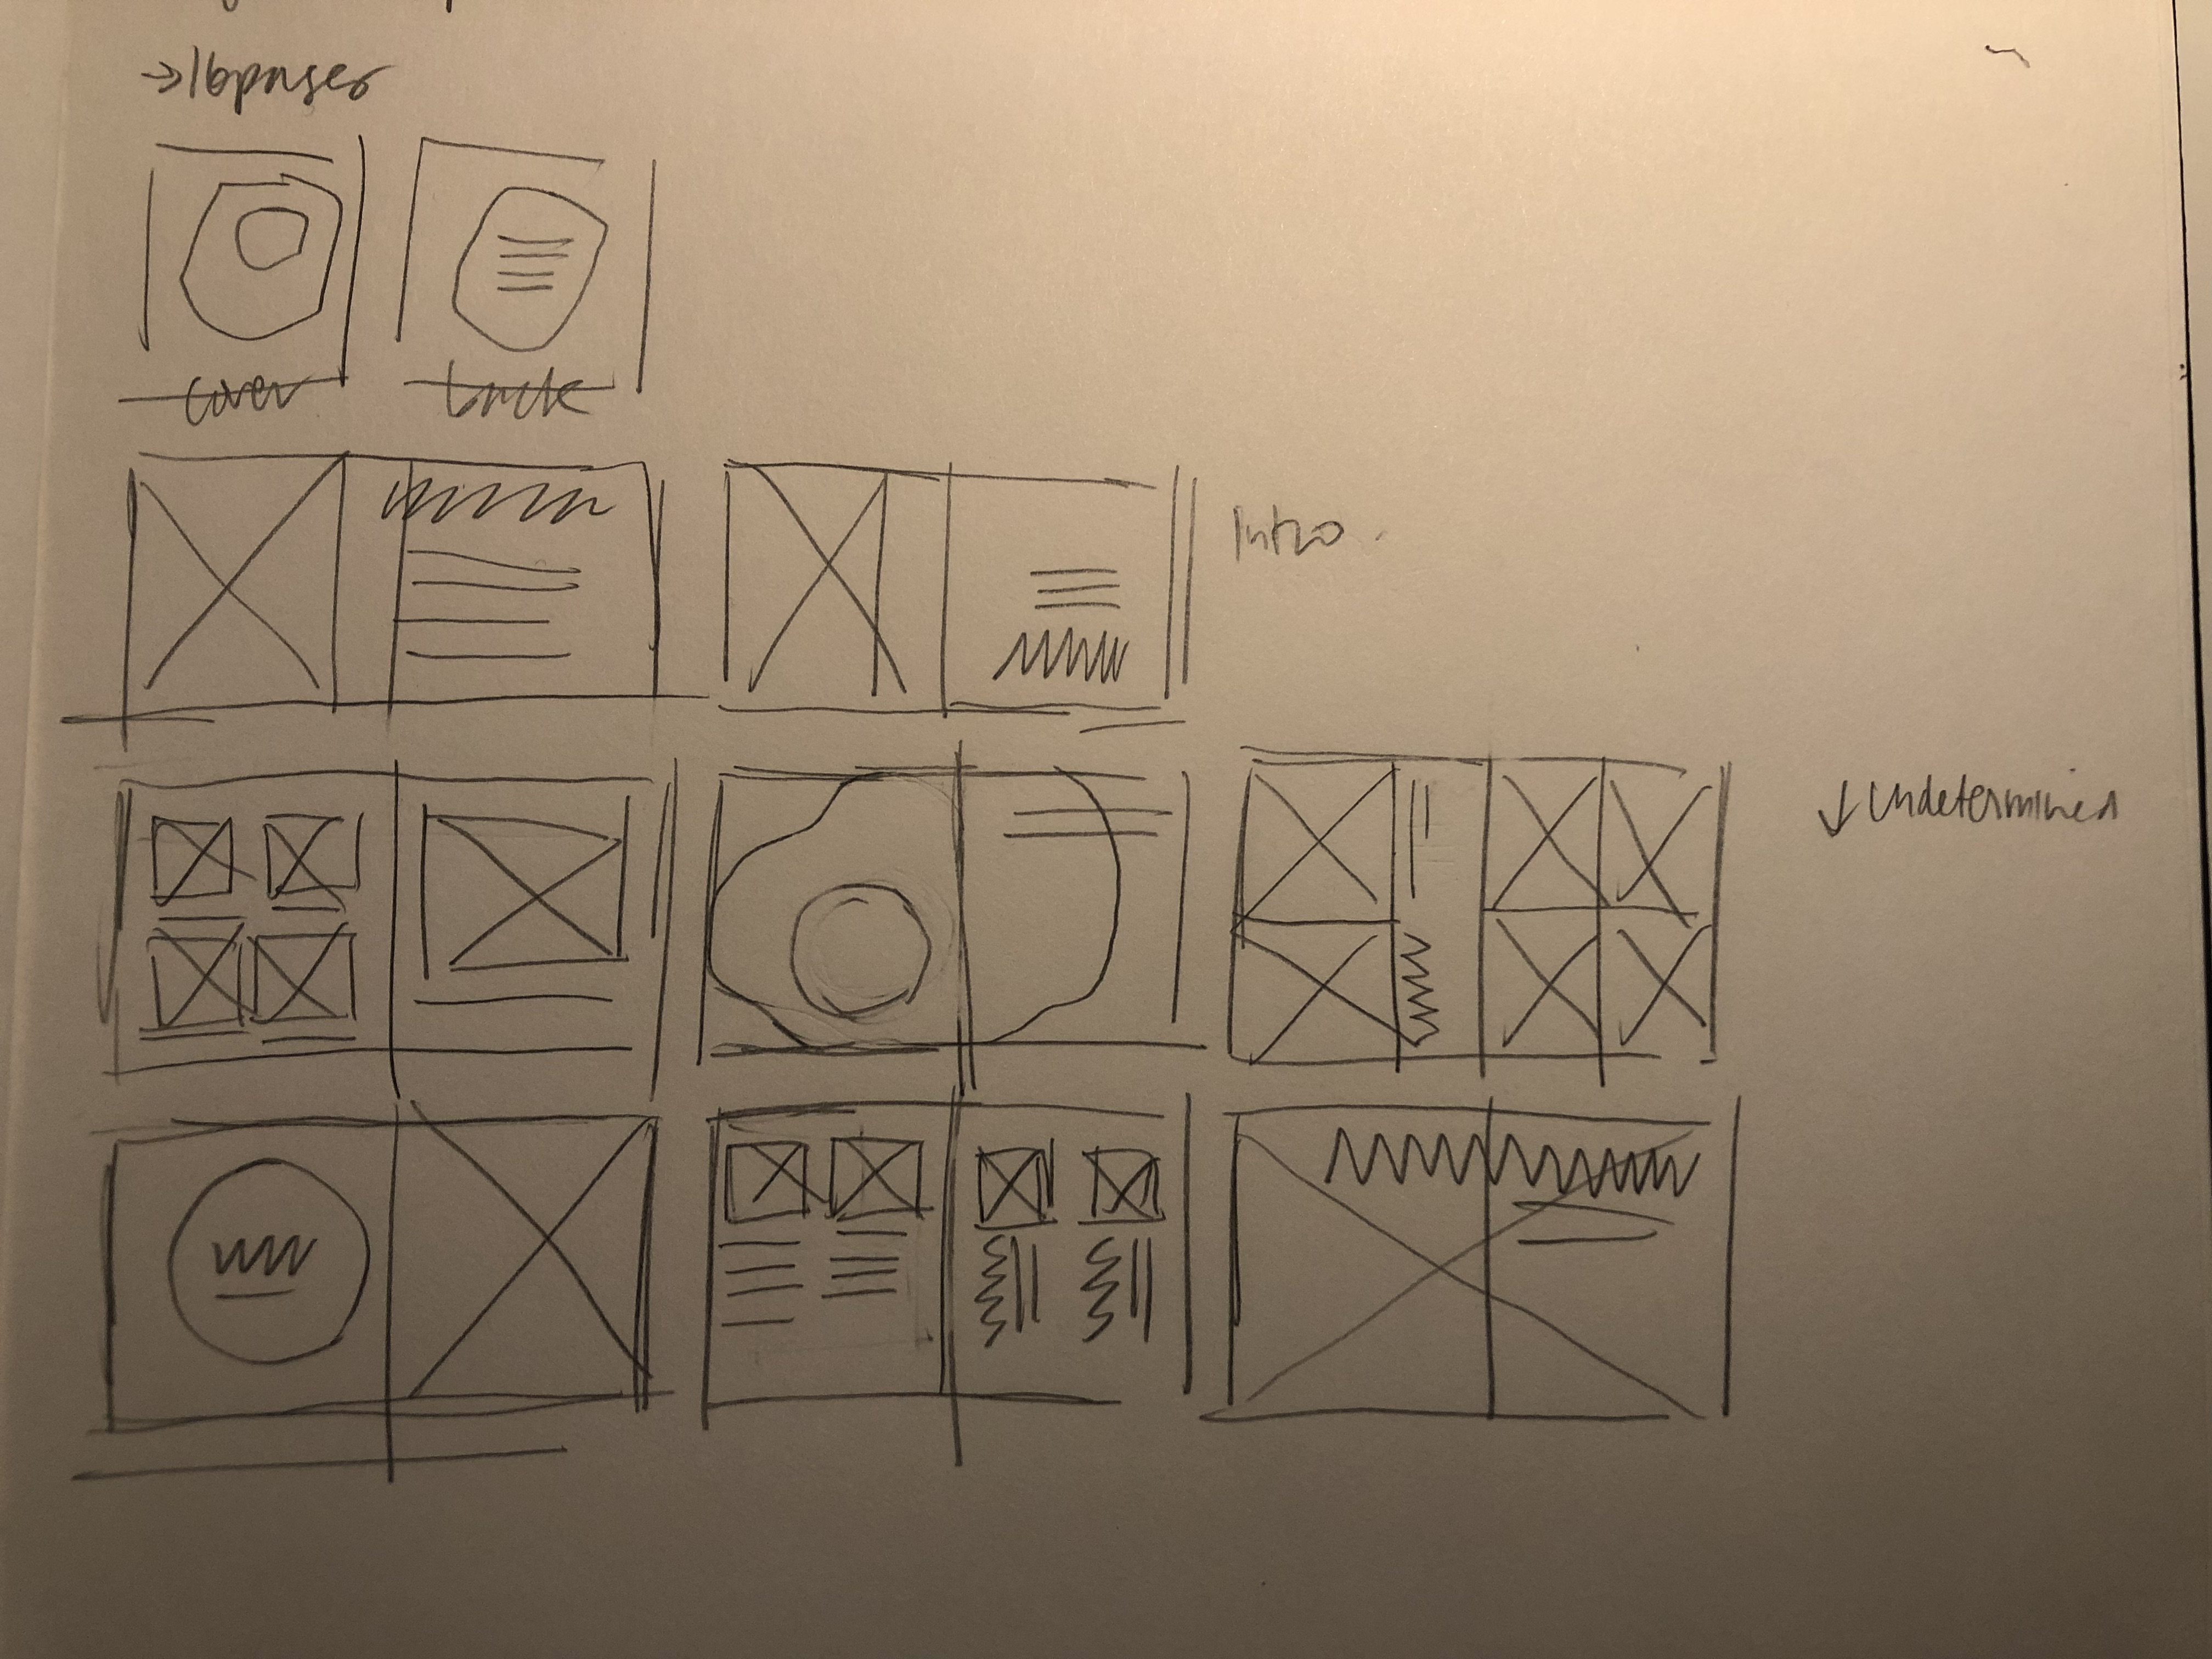 →16pages
cover
back
Intro
↓ Undetermined